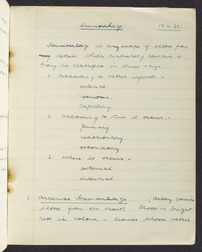 Haemorrhage
Haemorrhage is any escape of blood from
vessels which naturally contain it
may be classified in three ways.
1. according to vessel injured :-
arterial
venous
capillary
2. according to time it occurs :-
primary
reactionary
secondary
3. where it occurs :-
external
internal
1. arterial Haemorrhage. artery carries
blood from the heart. Blood is bright
red in colour & leaves blood vessel